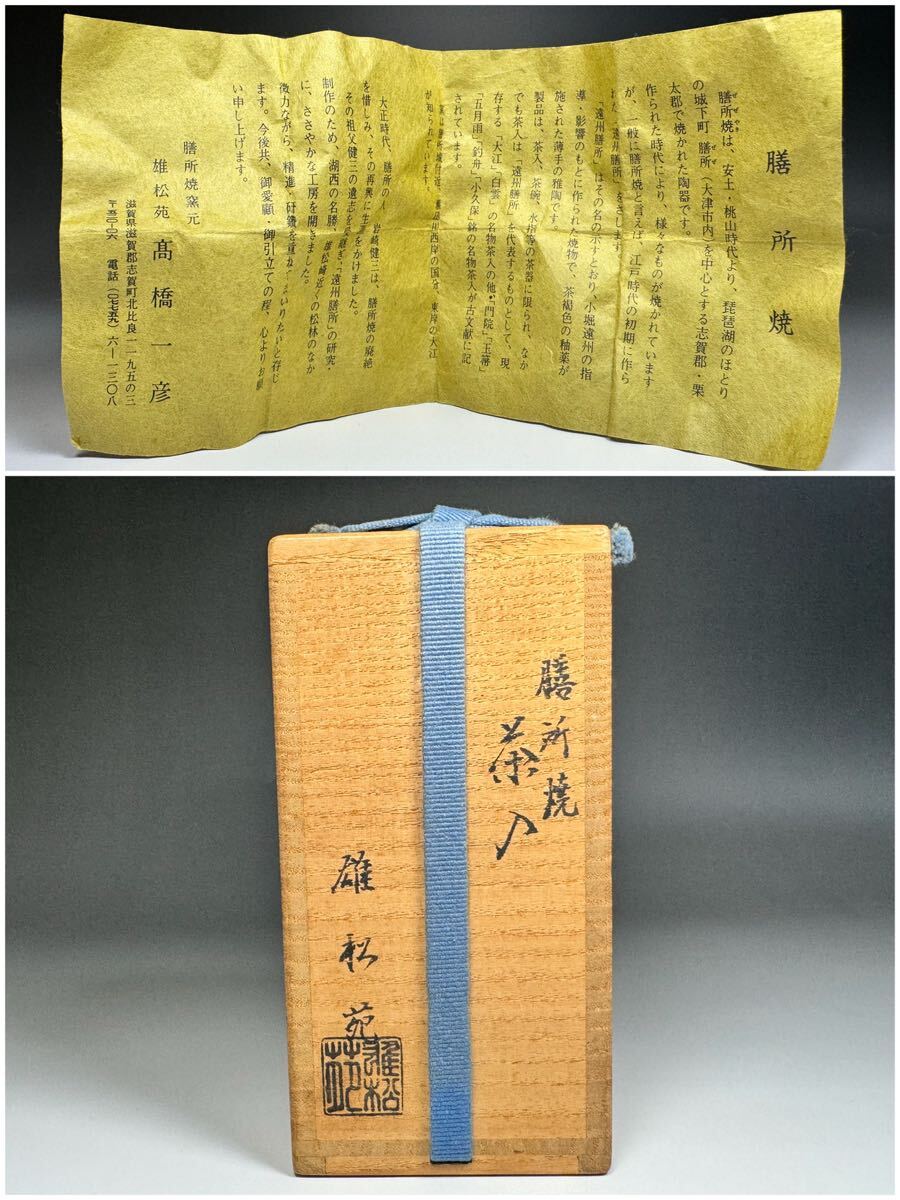 膳所焼
膳所焼は、安土・桃山時代より、琵琶湖のほとり
の城下町 膳所（大津市内）を中心とする志賀郡・栗
太郡で焼かれた陶器です。
作られた時代により、様々なものが焼かれています
が、一般に膳所焼と言えば、江戸時代の初期に作ら
れた「遠州膳所」をさします。
「遠州膳所」はその名の示すとおり、小堀遠州の指
導・影響のもとに作られた焼物で、茶褐色の釉薬が
施された薄手の雅陶です。
製品は、茶入、茶碗、水指等の茶器に限られ、なか
でも茶入は「遠州膳所」を代表するものとして、現
存する「大江」「白雲」の名物茶入の他・「門院」「玉藻」
「五月雨」「釣舟」「小久保」銘の名物茶入が古文献に記
されています。
西岸の国分、東岸の大江
が知られています。
大正時代、膳所の人 岩崎健三は、膳所焼の廃絶
を惜しみ、その再興に生涯をかけました。
その祖父健三の遺志を受継ぎ、「遠州膳所」の研究・
制作のため、湖西の名勝、雄松崎近くの松林のなか
に、ささやかな工房を開きました。
微力ながら、精進・研鑽を重ねてまいりたいと存じ
ます。今後共、御愛顧・御引立ての程、心よりお願
い申し上げます。
膳所焼窯元
雄松苑 髙橋一彦
滋賀県滋賀郡志賀町北比良一一九五の三
電話（〇七七五九）六—一三〇八
膳所焼
茶入
雄松苑
雄松苑